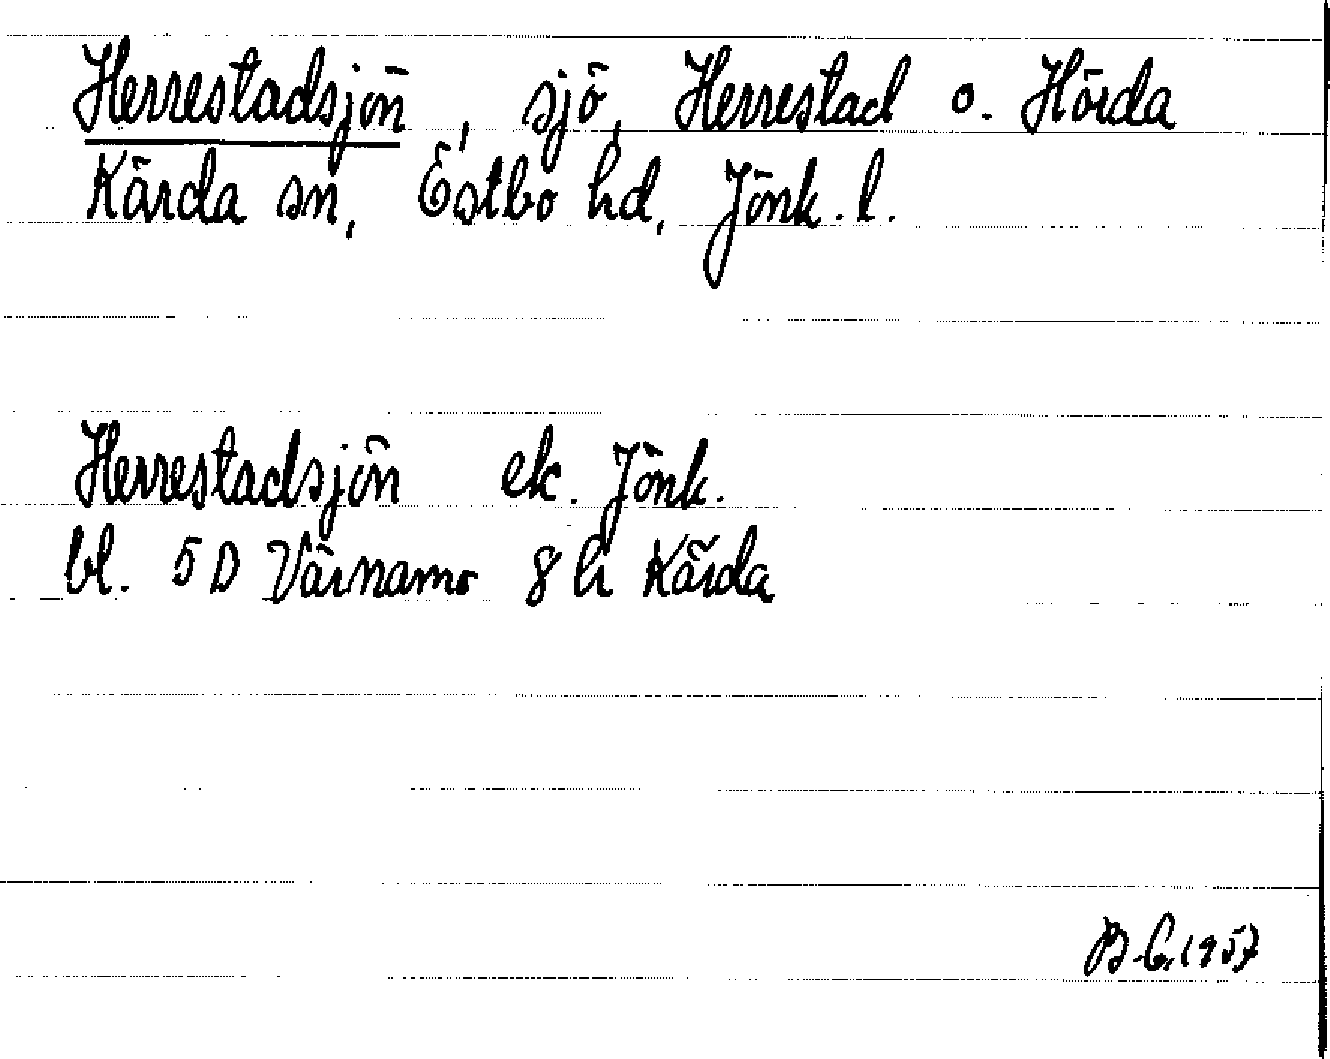 Herrestadsjön, sjö, Herrestad o. Hörda
Kärda sn, Östbo hd, Jönk. l.
Herrestadsjön ek. Jönk.
bl. 5D Värnamo 8h Kärda
B.C. 1957